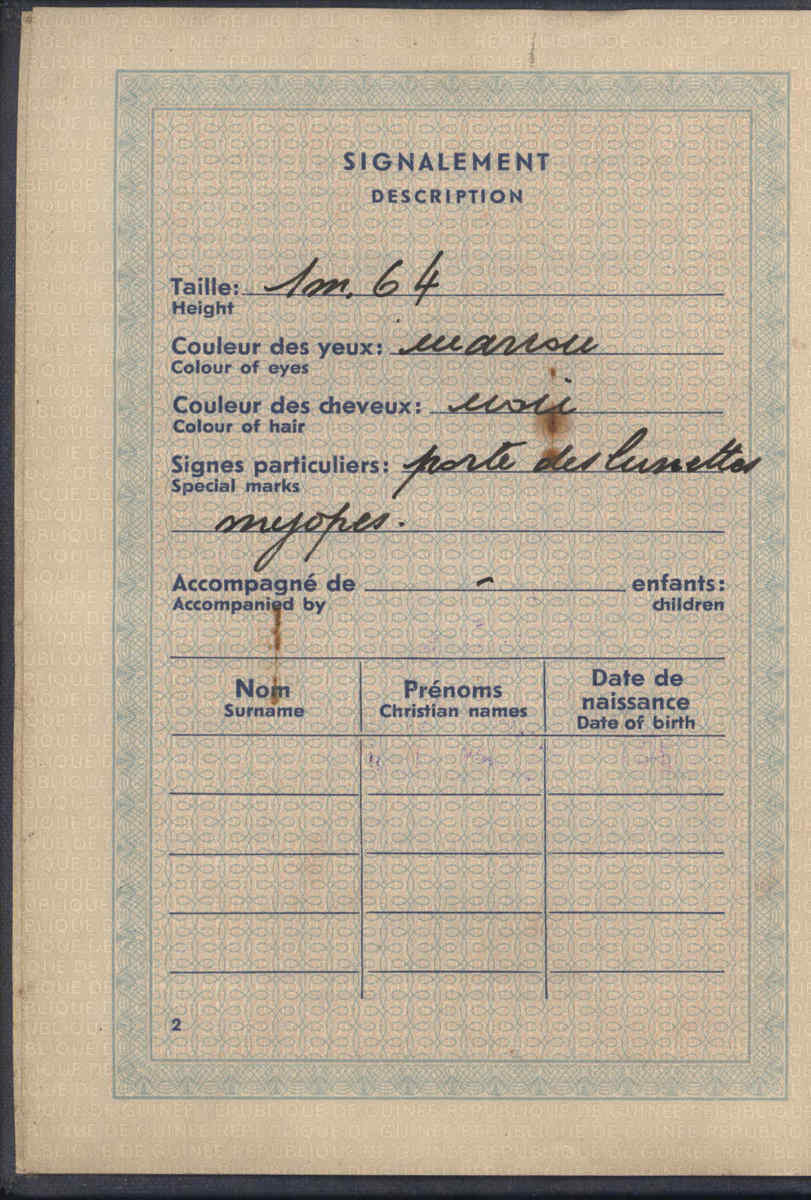 SIGNALEMENT
DESCRIPTION
Taille: 1m. 64
Height
Couleur des yeux: marron
Colour of eyes
Couleur des cheveux: noir
Colour of hair
Signes particuliers: porte des lunettes
Special marks
myopes.
Accompagné de - enfants:
Accompanied by children
Nom Prénoms Date de naissance
Surname Christian names Date of birth
2